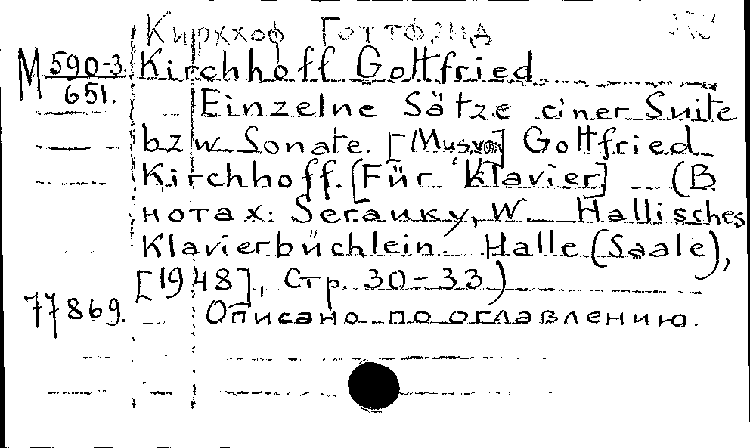 Кирхгоф Готтфрид
М 590-3 Kirchhoff Gottfried
651. Einzelne Sätze einer Suite
bzw Sonate. [Музыка] Gottfried
Kirchhoff. [Für Klavier] (В
нотах: Serauky, W. Hallisches
Klavierbüchlein Halle (Saale),
[1948], Стр. 30-33)
77869. Описано по оглавлению.